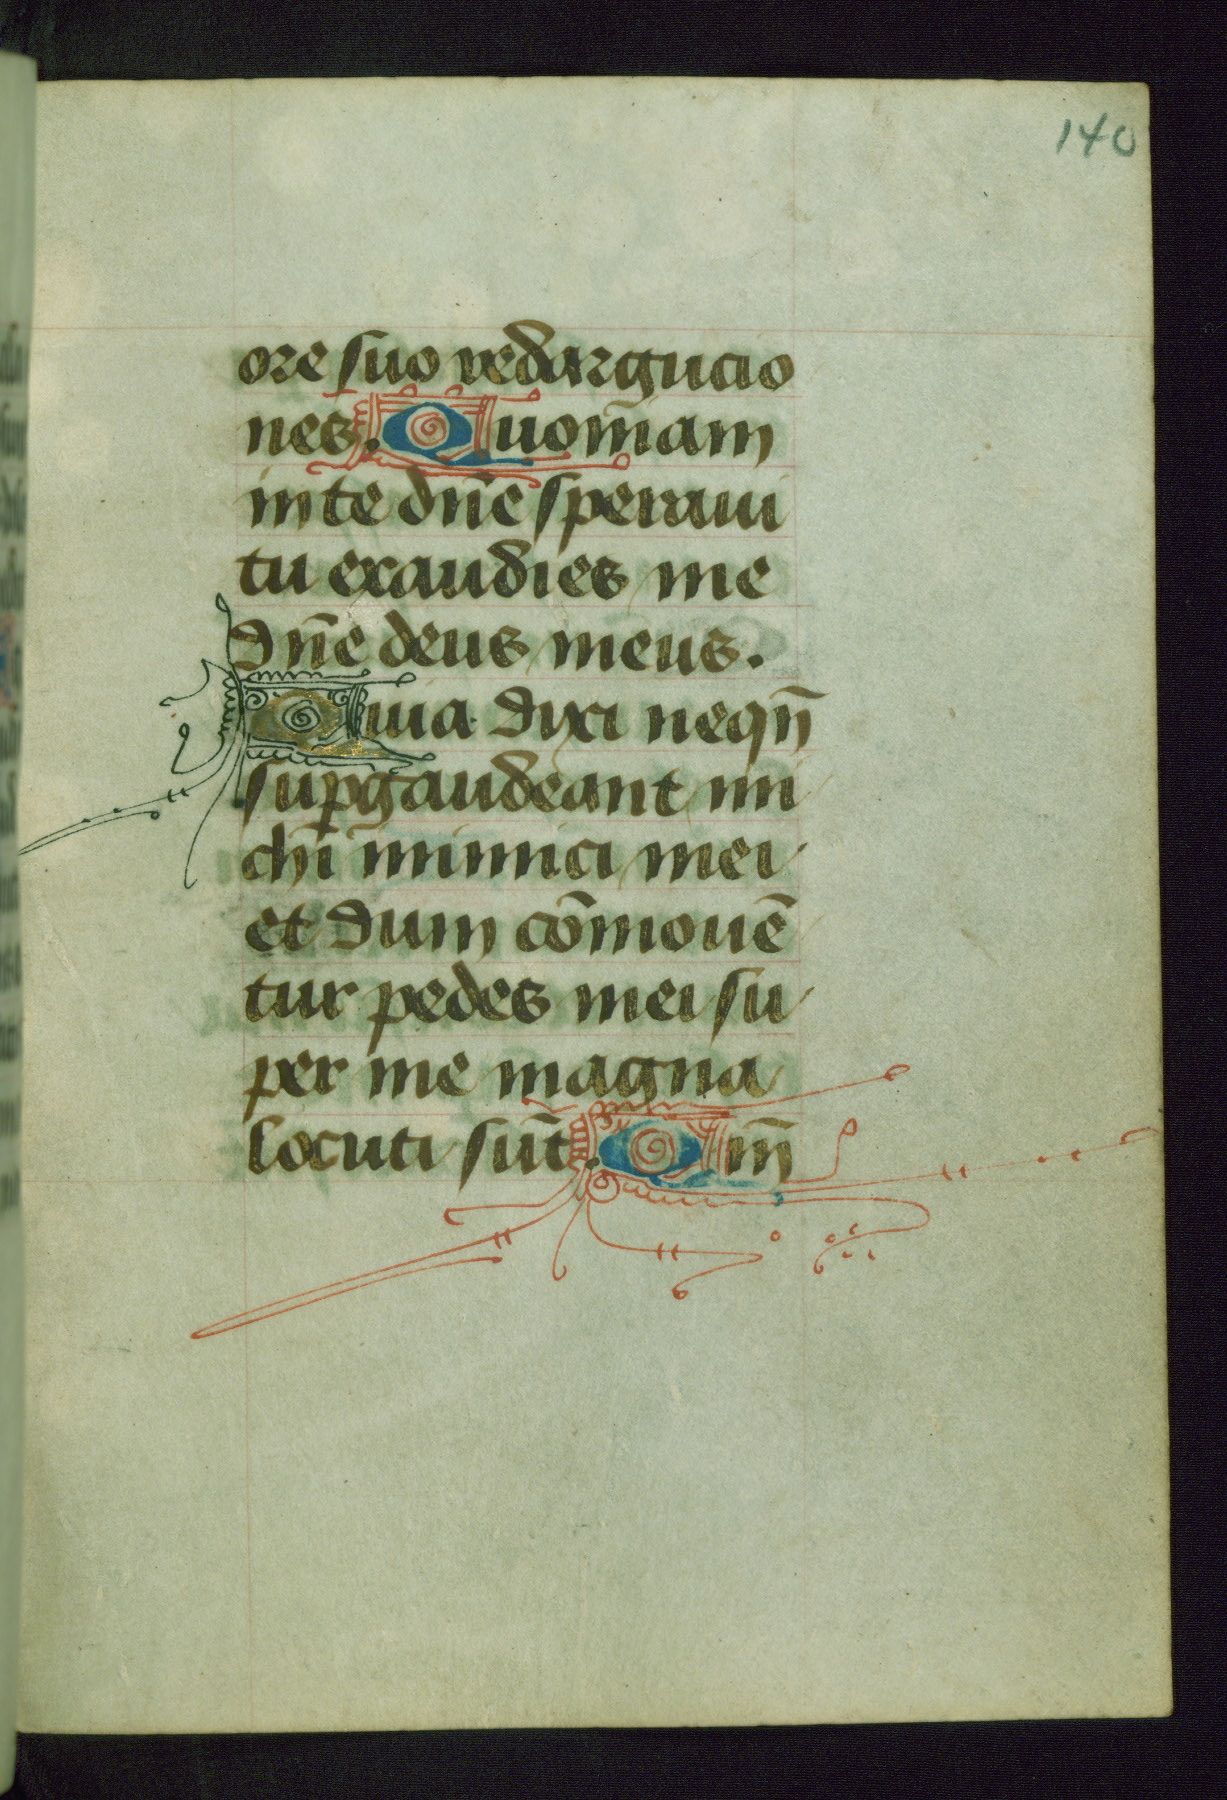 140
ore suo redargucio
nes. Quoniam
in te dn̄e speraui
tu exaudies me
dn̄e deus meus.
Quia dixi neqn̄
suꝑgaudeant mi
chi inimici mei
et dum cōmouē
tur pedes mei su
per me magna
locuti sūt. Qm̄